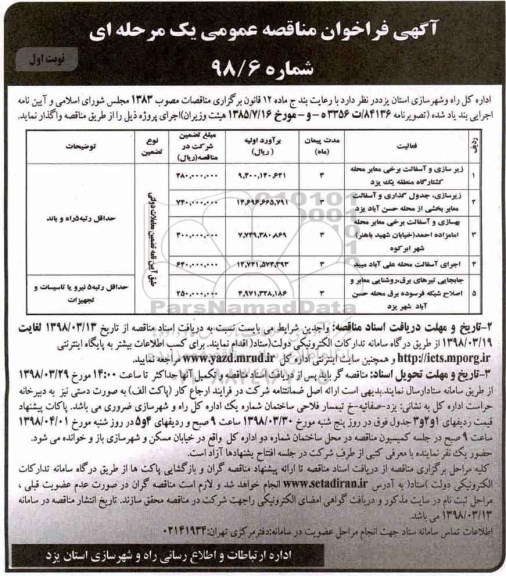 آگهی فراخوان مناقصه عمومی یک مرحله ای
نوبت اول
شماره ۹۸/۶
اداره کل راه وشهرسازی استان یزددر نظر دارد با رعایت بند ج ماده ۱۲ قانون برگزاری مناقصات مصوب ۱۳۸۳ مجلس شورای اسلامی و آیین نامه
اجرایی بند یاد شده (تصویرنامه ۸۴۱۳۶/ت ۳۳۵۶ ه - و - مورخ ۱۳۸۵/۷/۱۶ هیئت وزیران)اجرای پروژه ذیل را از طریق مناقصه واگذار نماید.
ردیف فعالیت مدت پیمان (ماه) برآورد اولیه (ریال) مبلغ تضمین شرکت در مناقصه(ریال) نوع تضمین توضیحات
۱ زیر سازی و آسفالت برخی معابر محله کشتارگاه منطقه یک یزد ۳ ۹,۴۰۰,۱۴۰,۶۳۱ ۴۸۰,۰۰۰,۰۰۰
۲ زیرسازی، جدول گذاری و آسفالت معابر بخشی از محله حسن آباد یزد ۳ ۱۴,۶۹۶,۶۶۵,۷۹۱ ۷۴۰,۰۰۰,۰۰۰
۳ بهسازی و آسفالت برخی معابر محله امامزاده احمد(خیابان شهید باهنر) شهر ابرکوه ۳ ۷,۷۴۹,۳۸۰,۸۶۹ ۴۰۰,۰۰۰,۰۰۰
۴ اجرای آسفالت محله علی آباد میبد ۳ ۱۲,۷۴۱,۵۷۴,۳۹۳ ۶۴۰,۰۰۰,۰۰۰
حداقل رتبه۵راه و باند
۵ جابجایی تیرهای برق،روشنایی معابر و اصلاح شبکه فرسوده برق محله حسن آباد شهر یزد ۳ ۴,۹۷۱,۳۲۸,۱۸۶ ۲۵۰,۰۰۰,۰۰۰ حداقل رتبه۵ نیرو یا تاسیسات و تجهیزات
طبق آیین نامه تضمین معاملات دولتی
۲-تاریخ و مهلت دریافت اسناد مناقصه: واجدین شرایط می بایست نسبت به دریافت اسناد مناقصه از تاریخ ۱۳۹۸/۰۳/۱۳ لغایت
۱۳۹۸/۰۳/۱۹ از طریق درگاه سامانه تدارکات الکترونیکی دولت(ستاد) اقدام نمایند. برای کسب اطلاعات بیشتر به پایگاه اینترنتی
http://iets.mporg.ir و همچنین سایت اینترنتی اداره کل www.yazd.mrud.ir مراجعه نمایید.
۳-تاریخ و مهلت تحویل اسناد: مناقصه گر باید پس از دریافت اسناد مناقصه و تکمیل آنها حداکثر تا ساعت ۱۴:۰۰ مورخ ۱۳۹۸/۰۳/۲۹ از
طریق سامانه ستادارسال نمایند.بدیهی است ارائه اصل ضمانتنامه شرکت در فرایند ارجاع کار (پاکت الف) به صورت دستی نیز به دبیرخانه
حراست اداره کل به نشانی: یزد-صفائیه-خ تیمسار فلاحی ساختمان شماره یک اداره کل راه و شهرسازی ضروری می باشد. پاکات پیشنهاد
قیمت ردیفهای ۱و۲و۳ جدول فوق در روز پنج شنبه مورخ ۱۳۹۸/۰۳/۳۰ ساعت ۹ صبح و ردیفهای ۴و۵ در روز شنبه مورخ ۱۳۹۸/۰۴/۰۱
ساعت ۹ صبح در جلسه کمیسیون مناقصه در محل ساختمان شماره دو اداره کل واقع در خیابان مسکن و شهرسازی باز و خوانده می شود.
حضور یک نفر نماینده با معرفی کتبی از طرف شرکت در جلسه افتتاح پیشنهادها آزاد است.
کلیه مراحل برگزاری مناقصه از دریافت اسناد مناقصه تا ارائه پیشنهاد مناقصه گران و بازگشایی پاکت ها از طریق درگاه سامانه تدارکات
الکترونیکی دولت (ستاد) به آدرس www.setadiran.ir انجام خواهد شد و لازم است مناقصه گران در صورت عدم عضویت قبلی ،
مراحل ثبت نام در سایت مذکور و دریافت گواهی امضای الکترونیکی راجهت شرکت در مناقصه محقق سازند. تاریخ انتشار مناقصه در سامانه
۱۳۹۸/۰۳/۱۳ می باشد.
اطلاعات تماس سامانه ستاد جهت انجام مراحل عضویت در سامانه:دفترمرکزی تهران:۰۲۱۴۱۹۳۴
اداره ارتباطات و اطلاع رسانی راه و شهرسازی استان یزد